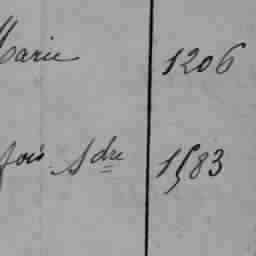 Marie 1206
fois Sdre 1583